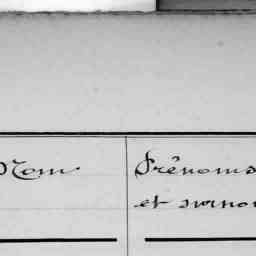 Nom
Prénoms
et surnom